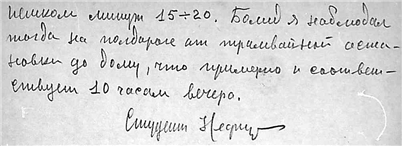 пешком минут 15÷20. Болид я наблюдал
тогда на полдороге от трамвайной оста-
новки до дому, что примерно и соответ-
ствует 10 часам вечера.
Студент